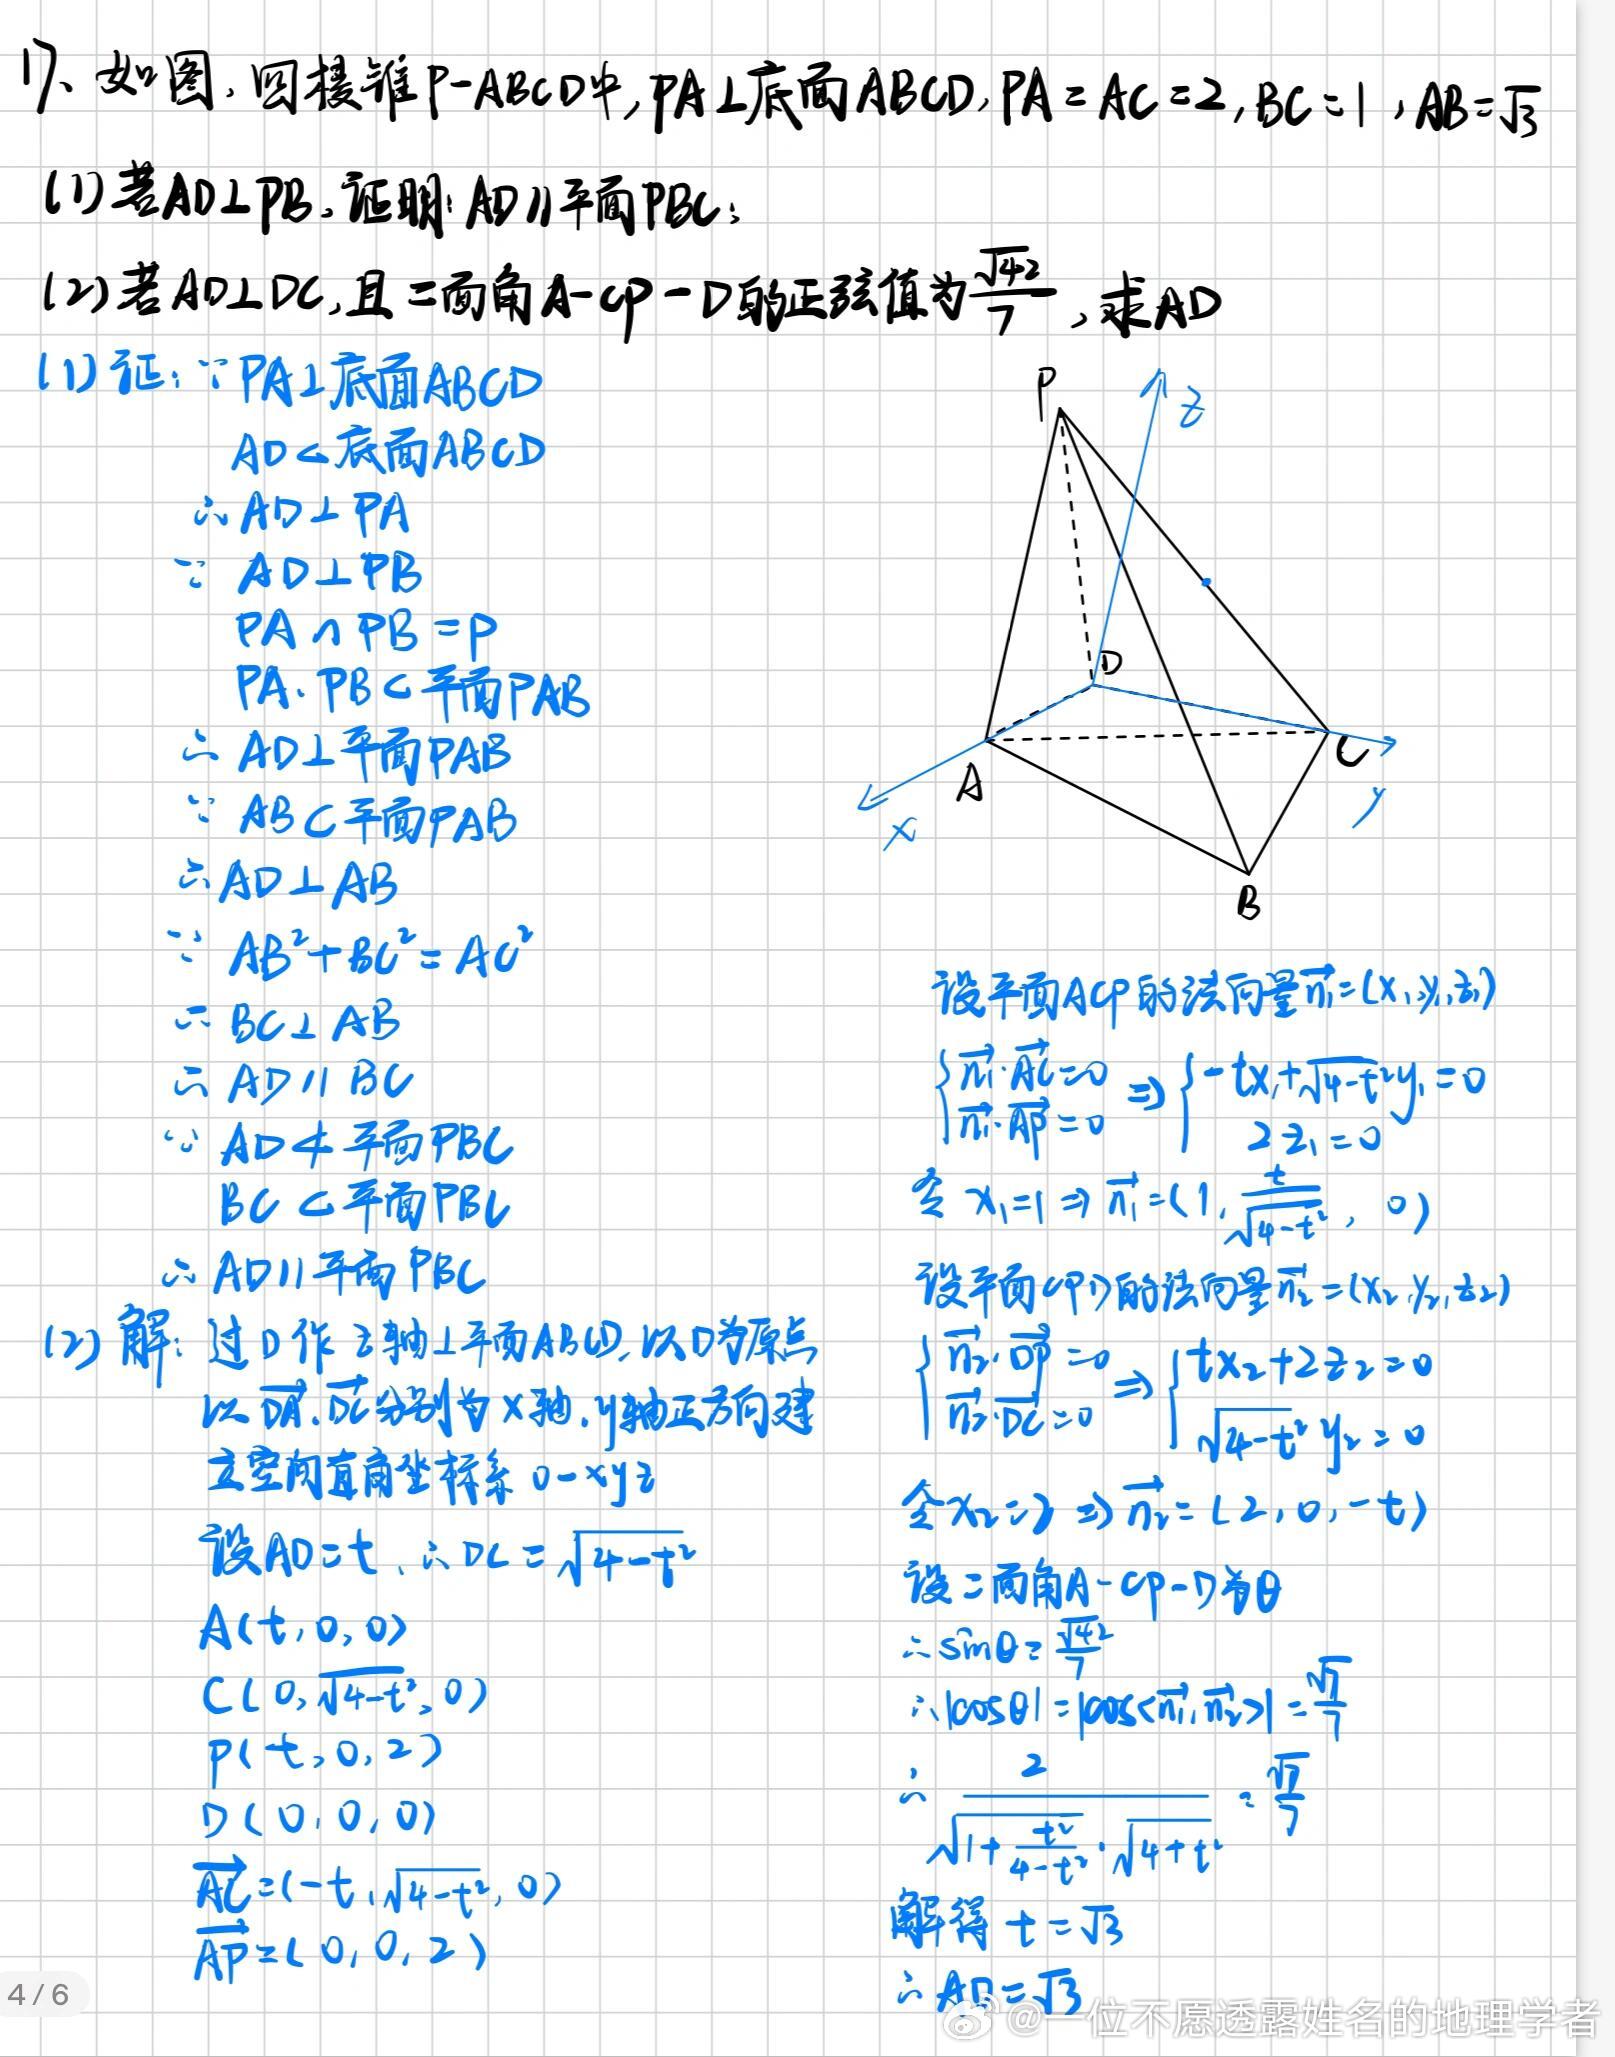 17、如图,四棱锥P-ABCD中,PA⊥底面ABCD,PA=AC=2,BC=1,AB=√3
(1)若AD⊥PB,证明:AD∥平面PBC;
(2)若AD⊥DC,且二面角A-CP-D的正弦值为√42/7,求AD
(1)证:∵PA⊥底面ABCD
AD⊂底面ABCD
∴AD⊥PA
∵AD⊥PB
PA∩PB=P
PA、PB⊂平面PAB
∴AD⊥平面PAB
∵AB⊂平面PAB
∴AD⊥AB
∵AB²+BC²=AC²
∴BC⊥AB
∴AD∥BC
∵AD⊄平面PBC
BC⊂平面PBC
∴AD∥平面PBC
(2)解:过D作z轴⊥平面ABCD,以D为原点
以DA→、DC→分别为x轴、y轴正方向建
立空间直角坐标系O-xyz
设AD=t、∴DC=√(4-t²)
A(t,0,0)
C(0,√(4-t²),0)
P(t,0,2)
D(0,0,0)
AC→=(-t,√(4-t²),0)
AP→=(0,0,2)
P
z
D
A
C
x
y
B
设平面ACP的法向量n₁→=(x₁,y₁,z₁)
{n₁→·AC→=0 ⇒ {-tx₁+√(4-t²)y₁=0
n₁→·AP→=0 2z₁=0
令x₁=1⇒n₁→=(1,t/√(4-t²),0)
设平面CPD的法向量n₂→=(x₂,y₂,z₂)
{n₂→·DP→=0 ⇒ {tx₂+2z₂=0
n₂→·DC→=0 √(4-t²)y₂=0
令x₂=2⇒n₂→=(2,0,-t)
设二面角A-CP-D为θ
∴sinθ=√42/7
∴|cosθ|=|cos<n₁→,n₂→>|=√7/7
∴2/(√(1+t²/(4-t²))·√(4+t²))=√7/7
解得t=√3
∴AD=√3
4/6
@一位不愿透露姓名的地理学者